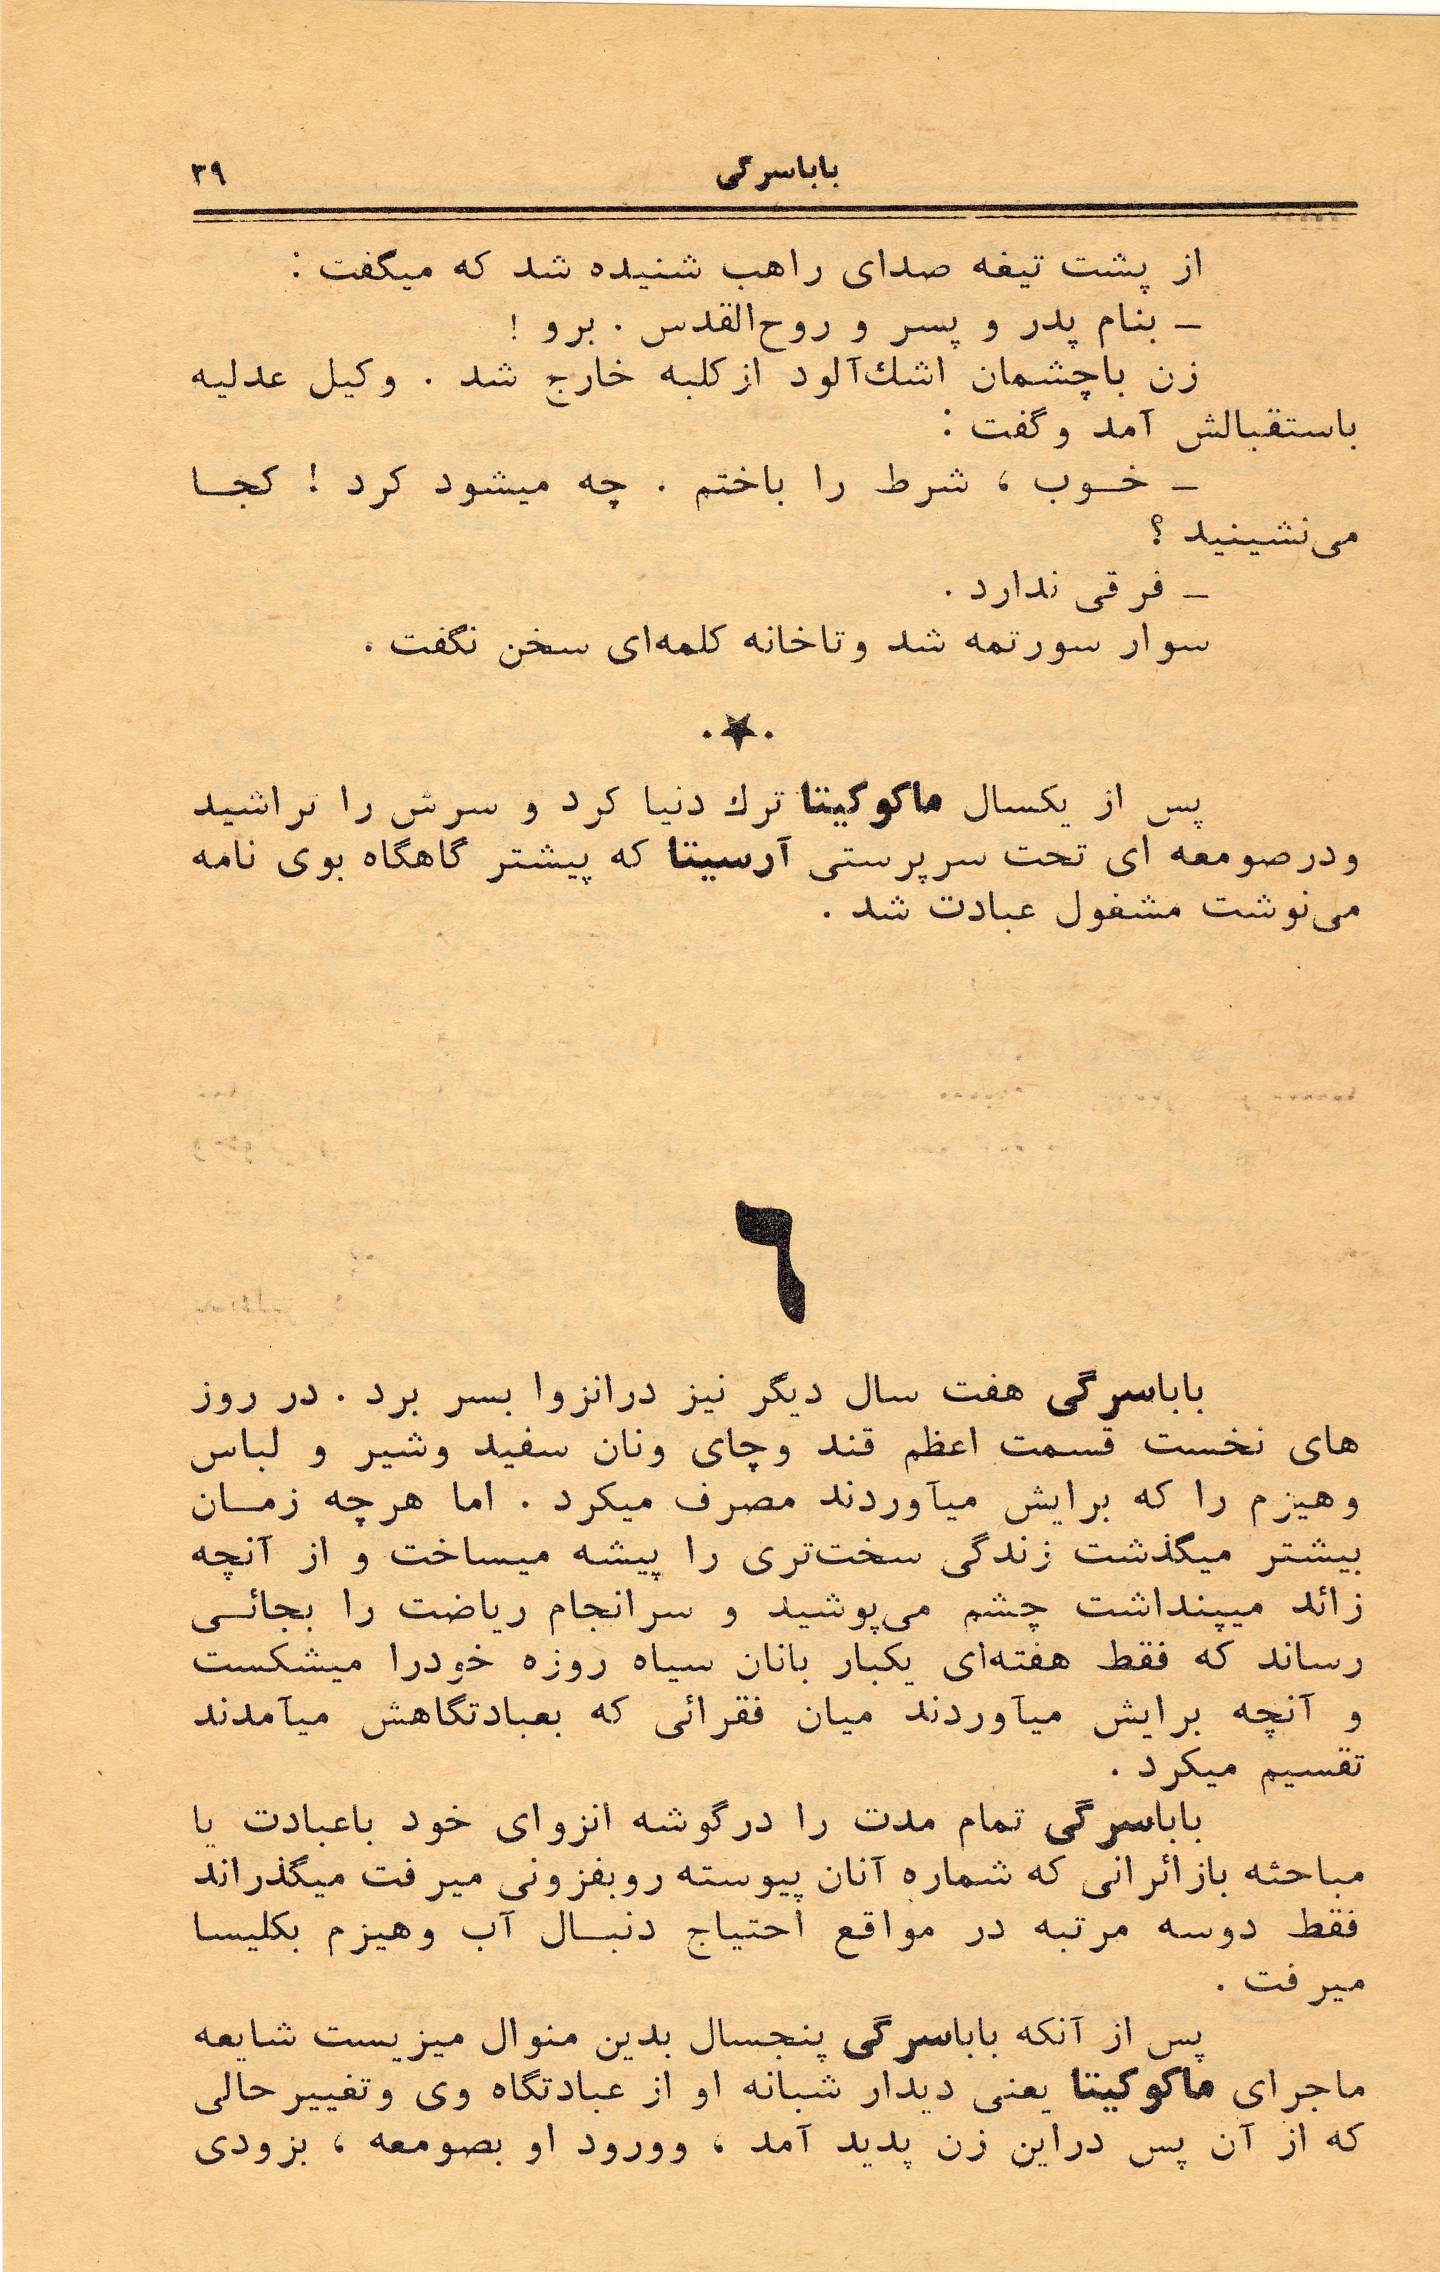 باباسرگی ۳۹
از پشت تیغه صدای راهب شنیده شد که میگفت :
ـ بنام پدر و پسر و روح‌القدس . برو !
زن باچشمان اشك‌آلود ازکلبه خارج شد . وکیل عدلیه
باستقبالش آمد وگفت :
ـ خــوب ، شرط را باختم . چه میشود کرد ! کجــا
می‌نشینید ؟
ـ فرقی ندارد .
سوار سورتمه شد وتاخانه کلمه‌ای سخن نگفت .
.★.
پس از یکسال ماکوکیتا ترك دنیا کرد و سرش را تراشید
ودرصومعه ای تحت سرپرستی آرسیتا که پیشتر گاهگاه بوی نامه
می‌نوشت مشغول عبادت شد .
٦
باباسرگی هفت سال دیگر نیز درانزوا بسر برد . در روز
های نخست قسمت اعظم قند وچای ونان سفید وشیر و لباس
وهیزم را که برایش میآوردند مصرف میکرد . اما هرچه زمــان
بیشتر میگذشت زندگی سخت‌تری را پیشه میساخت و از آنچه
زائد میپنداشت چشم می‌پوشید و سرانجام ریاضت را بجائــی
رساند که فقط هفته‌ای یکبار بانان سیاه روزه خودرا میشکست
و آنچه برایش میآوردند میان فقرائی که بعبادتگاهش میآمدند
تقسیم میکرد .
باباسرگی تمام مدت را درگوشه انزوای خود باعبادت یا
مباحثه بازائرانی که شماره آنان پیوسته روبفزونی میرفت میگذراند
فقط دوسه مرتبه در مواقع احتیاج دنبــال آب وهیزم بکلیسا
میرفت .
پس از آنکه باباسرگی پنجسال بدین منوال میزیست شایعه
ماجرای ماکوکیتا یعنی دیدار شبانه او از عبادتگاه وی وتغییرحالی
که از آن پس دراین زن پدید آمد ، وورود او بصومعه ، بزودی